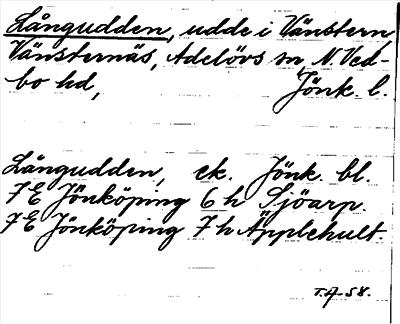 Långudden, udde i Vänstern,
Vänsternäs, Adelövs sn, N. Ved-
bo hd, Jönk. l.
Långudden, ek. Jönk. bl.
7 E Jönköping 6 h Sjöarp.
7 E Jönköping 7 h Äpplehult.
T.A-58.